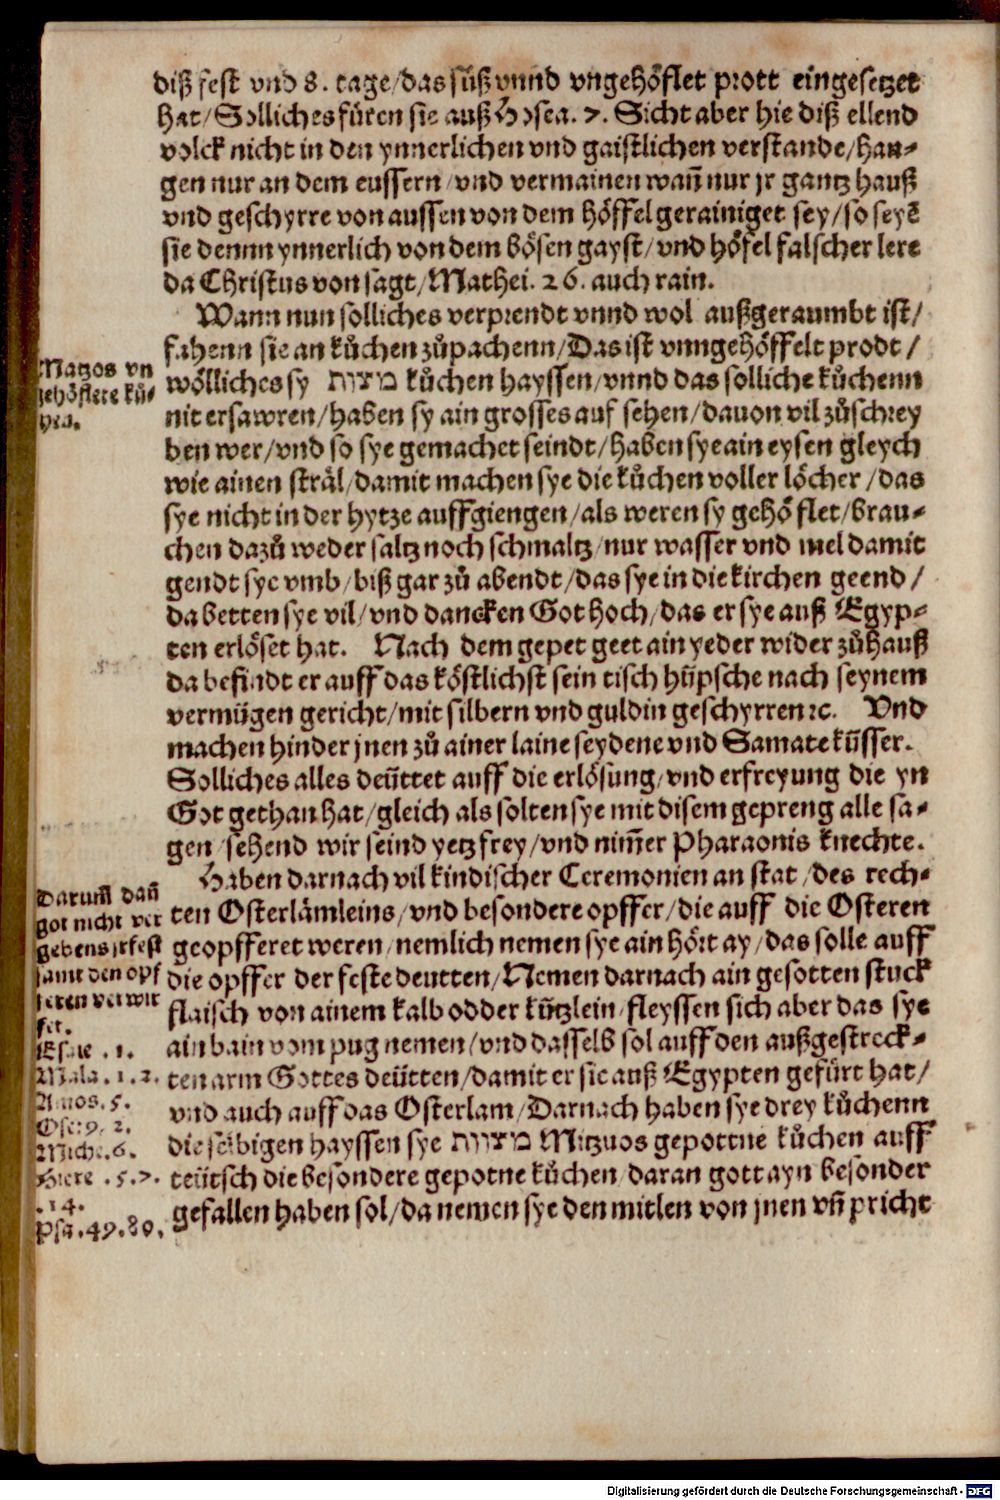 diß fest vnd 8. tage/das süß vnnd vngehöflet prott eingesetzet
hat/Solliches füren sie auß Hosea. 7. Sicht aber hie diß ellend
volck nicht in den ynnerlichen vnd gaistlichen verstande/han-
gen nur an dem eussern/vnd vermainen wañ nur jr gantz hauß
vnd geschyrre von aussen von dem höffel gerainiget sey/so seyẽ
sie dennn ynnerlich von dem bösen gayst/vnd höfel falscher lere
da Christus von sagt/Mathei. 26. auch rain.
Wann nun solliches verprendt vnnd wol außgeraumbt ist/
fahenn sie an kůchen zůpachenn/Das ist vnngehöffelt prodt/
wölliches sy מצות kůchen hayssen/vnnd das solliche kůchenn
nit ersawren/haben sy ain grosses auf sehen/dauon vil zůschrey
ben wer/vnd so sye gemachet seindt/haben sye ain eysen gleych
wie ainen sträl/damit machen sye die kůchen voller löcher/das
sye nicht in der hytze auffgiengen/als weren sy gehöflet/brau-
chen dazů weder saltz noch schmaltz/nur wasser vnd mel damit
gendt sye vmb/biß gar zů abendt/das sye in die kirchen geend/
da betten sye vil/vnd dancken Got hoch/das er sye auß Egyp-
ten erlöset hat. Nach dem gepet geet ain yeder wider zůhauß
da befindt er auff das köstlichst sein tisch hüpsche nach seynem
vermügen gericht/mit silbern vnd guldin geschyrren ꝛc. Vnd
machen hinder jnen zů ainer laine seydene vnd Samate küsser.
Solliches alles deüttet auff die erlösung/vnd erfreyung die yn
Got gethan hat/gleich als solten sye mit disem gepreng alle sa-
gen/sehend wir seind yetz frey/vnd nim̃er Pharaonis knechte.
Haben darnach vil kindischer Ceremonien an stat/des rech-
ten Osterlämleins/vnd besondere opffer/die auff die Osteren
geopfferet weren/nemlich nemen sye ain hört ay/das solle auff
die opffer der feste deutten/Nemen darnach ain gesotten stuck
flaisch von ainem kalb odder kützlein/fleyssen sich aber das sye
ain bain vom pug nemen/vnd dasselb sol auff den außgestreck-
ten arm Gottes deütten/damit er sie auß Egypten gefürt hat/
vnd auch auff das Osterlam/Darnach haben sye drey kůchenn
die selbigen hayssen sye מצות Mitzuos gepottne kůchen auff
teütsch die besondere gepotne kůchen/daran gott ayn besonder
gefallen haben sol/da nemen sye den mitlen von jnen vñ pricht
Matzos vn
gehöflete kü-
chen.
Darum̃ dañ
got nicht ver
gebens jr fest
samt den opf
feren verwir
fet.
Esaie .1.
Mala. 1. 2.
Amos. 5.
Osee 9. 2.
Miche. 6.
Hiere. 5. 7.
. 14.
Psa. 49. 80.
Digitalisierung gefördert durch die Deutsche Forschungsgemeinschaft - DFG